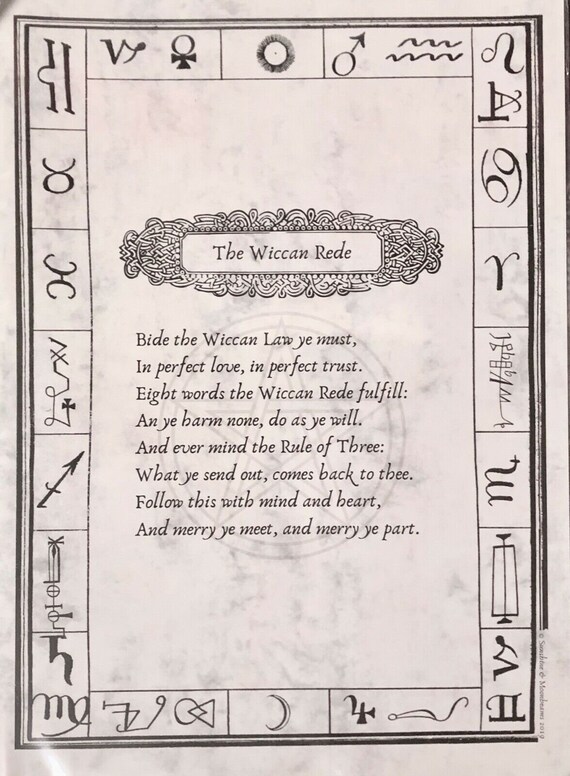 The Wiccan Rede
Bide the Wiccan Law ye must,
In perfect love, in perfect trust.
Eight words the Wiccan Rede fulfill:
An ye harm none, do as ye will.
And ever mind the Rule of Three:
What ye send out, comes back to thee.
Follow this with mind and heart,
And merry ye meet, and merry ye part.